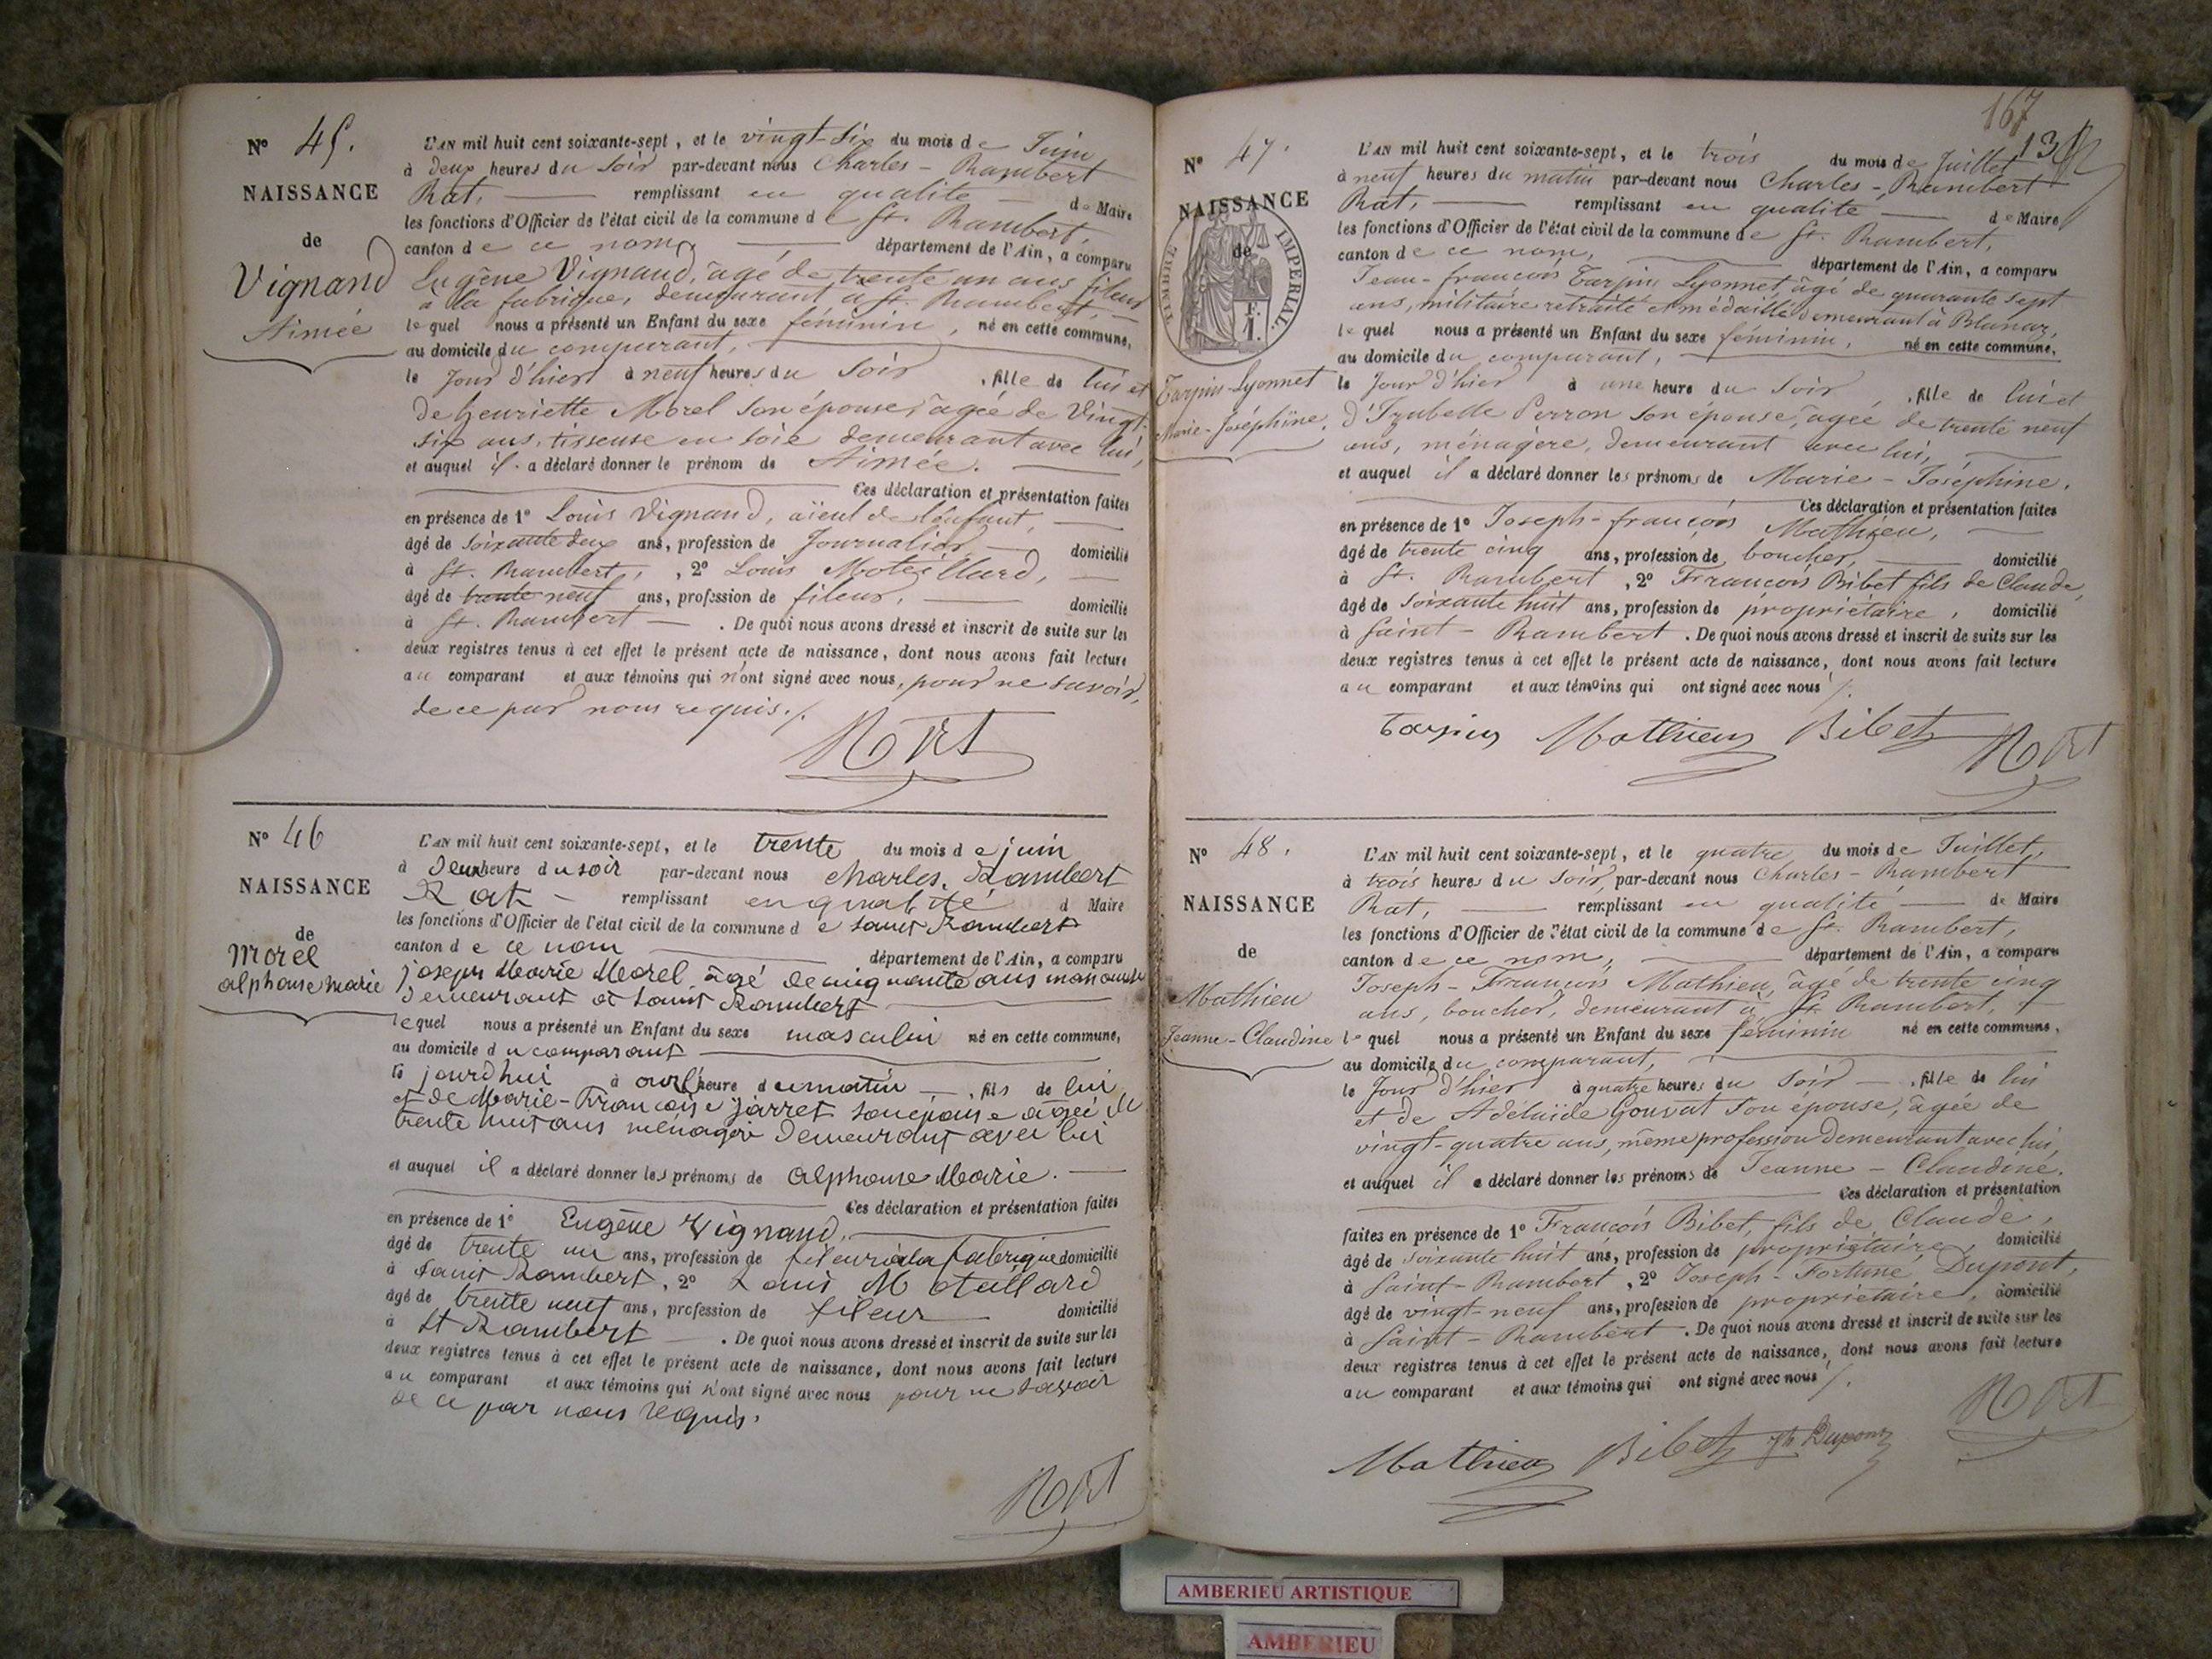 N° 45.
NAISSANCE
de
Vignand
Aimée
L'AN mil huit cent soixante-sept, et le vingt-six du mois de Juin
à deux heures du soir par-devant nous Charles-Rambert
Rat, remplissant en qualité de Maire
les fonctions d'Officier de l'état civil de la commune de St. Rambert,
canton de ce nom, département de l'Ain, a comparu
Eugène Vignand, âgé de trente un ans fileur
à la fabrique, demeurant à St. Rambert,
lequel nous a présenté un Enfant du sexe féminin, né en cette commune,
au domicile du comparant,
le Jour d'hier à neuf heures du soir, fille de lui et
de Henriette Morel son épouse, âgée de vingt-
six ans, tisseuse en soie demeurant avec lui,
et auquel il a déclaré donner le prénom de Aimée.
Ces déclaration et présentation faites
en présence de 1° Louis Vignand, aïeul de l'enfant,
âgé de soixante deux ans, profession de Journalier domicilié
à St. Rambert, 2° Louis Moteillard,
âgé de trente neuf ans, profession de fileur, domicilié
à St. Rambert. De quoi nous avons dressé et inscrit de suite sur les
deux registres tenus à cet effet le présent acte de naissance, dont nous avons fait lecture
au comparant et aux témoins qui n'ont signé avec nous, pour ne savoir,
de ce par nous requis./.
Rat
N° 46
NAISSANCE
de
Morel
alphonse marie
L'AN mil huit cent soixante-sept, et le trente du mois de juin
à deux heure du soir par-devant nous charles, Rambert
Rat remplissant en qualité d Maire
les fonctions d'Officier de l'état civil de la commune de saint Rambert
canton de ce nom département de l'Ain, a comparu
joseph Marie Morel, âgé de cinquante ans
demeurant à saint Rambert
lequel nous a présenté un Enfant du sexe masculin né en cette commune,
au domicile du comparant
le jourdhui à heure du matin, fils de lui
et de Marie-Françoise jarret son epouse agée de
trente huit ans ménagère demeurant avec lui
et auquel il a déclaré donner les prénoms de alphonse Marie.
Ces déclaration et présentation faites
en présence de 1° Eugène Vignand,
âgé de trente un ans, profession de fileur à la fabrique domicilié
à saint Rambert, 2° Louis Moteillard
âgé de trente neuf ans, profession de fileur domicilié
à St Rambert. De quoi nous avons dressé et inscrit de suite sur les
deux registres tenus à cet effet le présent acte de naissance, dont nous avons fait lecture
au comparant et aux témoins qui n'ont signé avec nous pour ne savoir
de ce par nous requis.
Rat
167
13
N° 47.
NAISSANCE
de
TIMBRE IMPERIAL.
Tarpin-Lyonnet
Marie-Joséphine.
L'AN mil huit cent soixante-sept, et le trois du mois de Juillet
à neuf heures du matin par-devant nous Charles-Rambert
Rat, remplissant en qualité de Maire
les fonctions d'Officier de l'état civil de la commune de St. Rambert,
canton de ce nom, département de l'Ain, a comparu
Jean-françois Tarpin Lyonnet, âgé de quarante sept
ans, militaire retraité et médaillé demeurant à Blanaz,
lequel nous a présenté un Enfant du sexe féminin, né en cette commune,
au domicile du comparant,
le Jour d'hier à une heure du soir, fille de lui et
d'Izabelle Perron son épouse, âgée de trente neuf
ans, ménagère, demeurant avec lui,
et auquel il a déclaré donner les prénoms de Marie-Joséphine.
Ces déclaration et présentation faites
en présence de 1° Joseph-françois Mathieu,
âgé de trente cinq ans, profession de boucher, domicilié
à St. Rambert, 2° François Bibet fils de Claude,
âgé de soixante huit ans, profession de propriétaire, domicilié
à Saint-Rambert. De quoi nous avons dressé et inscrit de suite sur les
deux registres tenus à cet effet le présent acte de naissance, dont nous avons fait lecture
au comparant et aux témoins qui ont signé avec nous /.
Tarpin Mathieu Bibet Rat
N° 48.
NAISSANCE
de
Mathieu
Jeanne-Claudine
L'AN mil huit cent soixante-sept, et le quatre du mois de Juillet,
à trois heures du soir, par-devant nous Charles-Rambert
Rat, remplissant en qualité de Maire
les fonctions d'Officier de l'état civil de la commune de St. Rambert,
canton de ce nom, département de l'Ain, a comparu
Joseph-François Mathieu, âgé de trente cinq
ans, boucher, demeurant à St. Rambert,
lequel nous a présenté un Enfant du sexe féminin né en cette commune,
au domicile du comparant,
le Jour d'hier à quatre heures du soir, fille de lui
et de Adélaïde Gouvat son épouse, âgée de
vingt-quatre ans, même profession demeurant avec lui,
et auquel il a déclaré donner les prénoms de Jeanne-Claudine.
Ces déclaration et présentation
faites en présence de 1° François Bibet, fils de Claude,
âgé de soixante huit ans, profession de propriétaire, domicilié
à Saint-Rambert, 2° Joseph-Fortuné Dupont,
âgé de vingt-neuf ans, profession de propriétaire, domicilié
à Saint-Rambert. De quoi nous avons dressé et inscrit de suite sur les
deux registres tenus à cet effet le présent acte de naissance, dont nous avons fait lecture
au comparant et aux témoins qui ont signé avec nous /.
Rat
Mathieu Bibet Dupont
AMBERIEU ARTISTIQUE
AMBERIEU